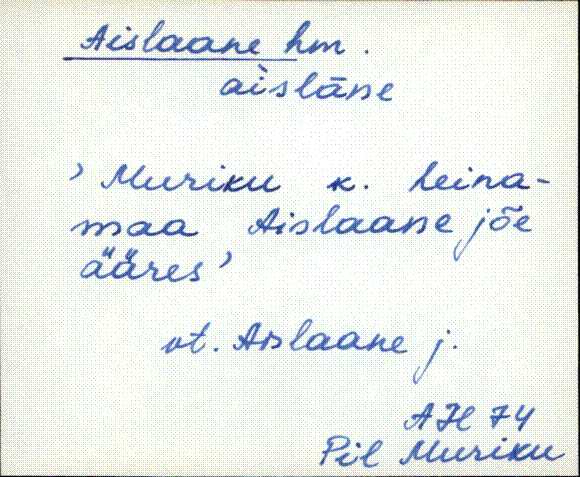 Aislaane hm.
aìslāne
’Muriku k. heina-
maa Aislaane jõe
ääres’
vt. Aislaane j.
AH 74
Pil Muriku